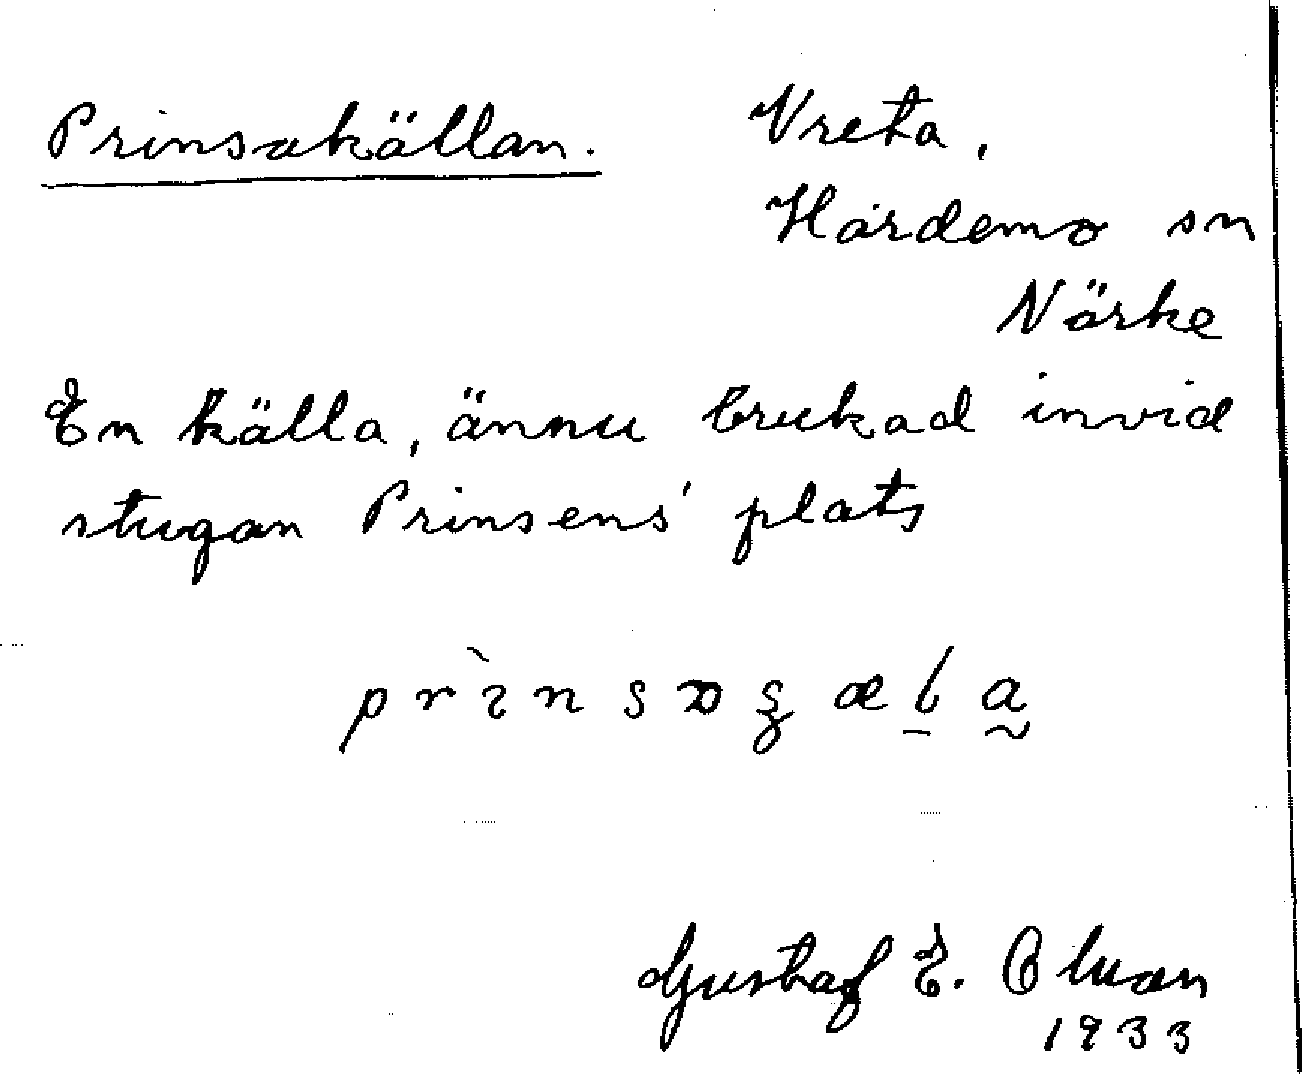 Prinsakällan.
Vreta,
Hardemo sn
Närke
En källa, ännu brukad invid
stugan Prinsens' plats
Gustaf E.
1933